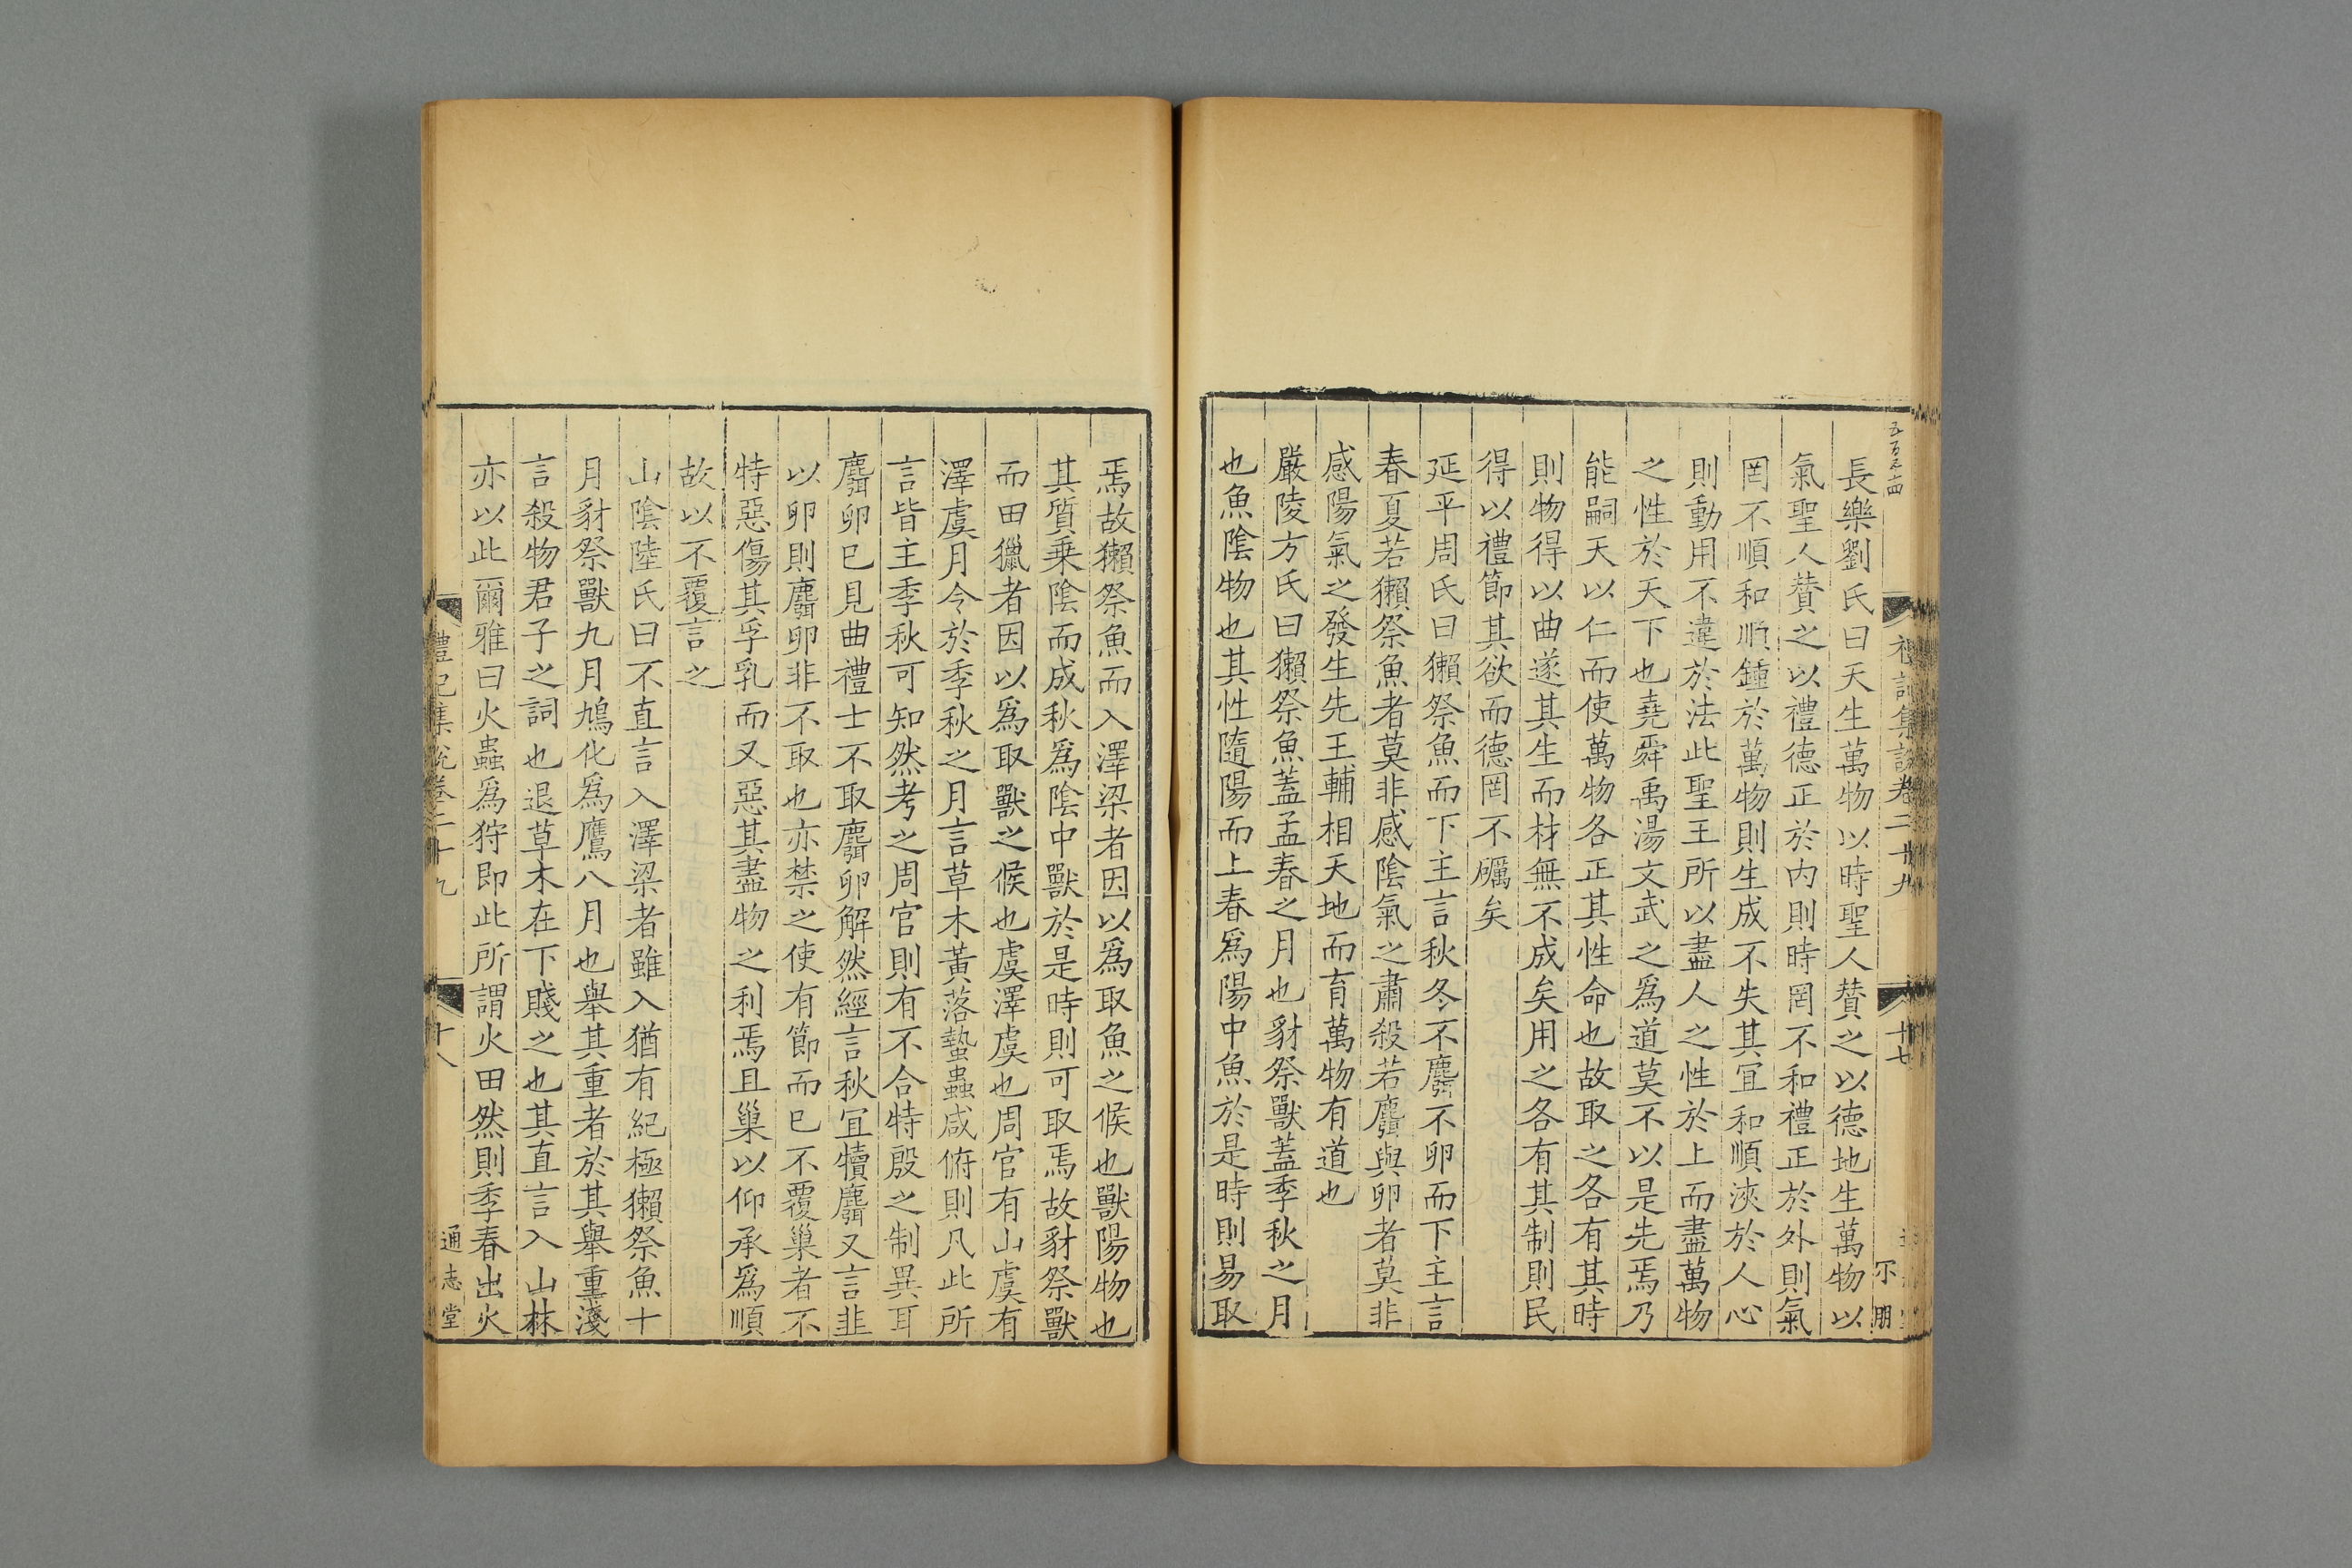 長樂劉氏曰天生萬物以時聖人贊之以德地生萬物以
氣聖人贊之以禮德正於内則時罔不和禮正於外則氣
罔不順和順鍾於萬物則生成不失其冝和順浹於人心
則動用不違於法此聖王所以盡人之性於上而盡萬物
之性於天下也堯舜禹湯文武之爲道莫不以是先焉乃
能嗣天以仁而使萬物各正其性命也故取之各有其時
則物得以曲遂其生而材無不成矣用之各有其制則民
得以禮節其欲而德罔不礪矣
延平周氏曰獺祭魚而下主言秋冬不麛不卵而下主言
春夏若獺祭魚者莫非感陰氣之肅殺若麛與卵者莫非
感陽氣之發生先王輔相天地而育萬物有道也
嚴陵方氏曰獺祭魚蓋孟春之月也豺祭獸蓋季秋之月
也魚陰物也其性隨陽而上春爲陽中魚於是時則易取
禮記集說卷二十九
十七
焉故獺祭魚而入澤梁者因以爲取魚之候也獸陽物也
其質乗陰而成秋爲陰中獸於是時則可取焉故豺祭獸
而田獵者因以爲取獸之候也虞澤虞也周官有山虞有
澤虞月令於季秋之月言草木黃落蟄蟲咸俯則凡此所
言皆主季秋可知然考之周官則有不合特殷之制異耳
麛卵已見曲禮士不取麛卵解然經言秋冝犢麛又言韭
以卵則麛卵非不取也亦禁之使有節而已不覆巢者不
特惡傷其孚乳而又惡其盡物之利焉且巢以仰承爲順
故以不覆言之
山陰陸氏曰不直言入澤梁者雖入猶有紀極獺祭魚十
月豺祭獸九月鳩化爲鷹八月也舉其重者於其舉重淺
言殺物君子之詞也退草木在下賤之也其直言入山林
亦以此爾雅曰火蟲爲狩即此所謂火田然則季春出火
禮記集說卷二十九
十八
通志堂